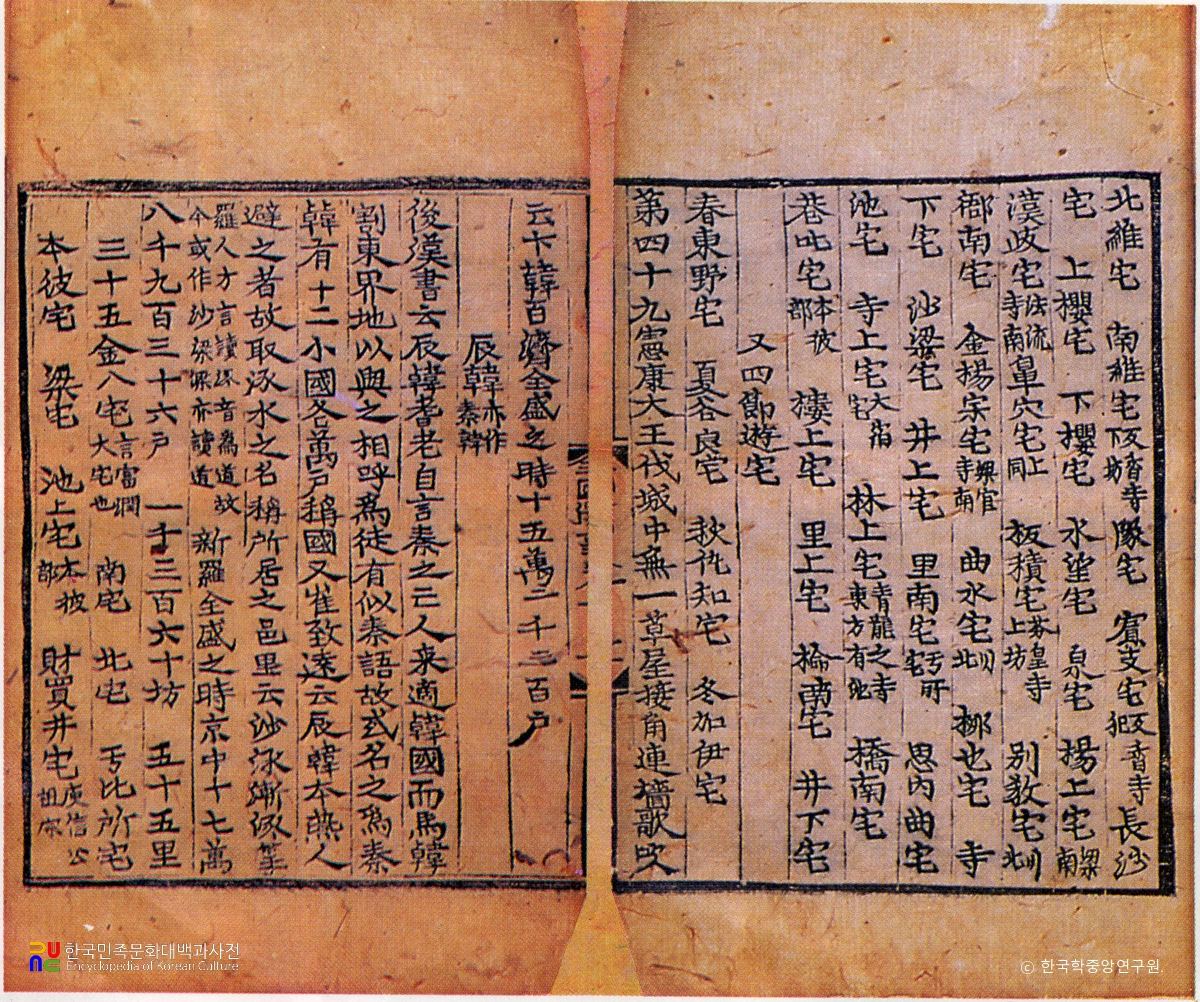 北維宅 南維宅 反香寺下坊 隊宅 賓支宅 反香寺犯 長沙
宅 上櫻宅 下櫻宅 水望宅 泉宅 楊上宅 梁南
漢歧宅 法流寺南 皐穴宅 上同 板積宅 芬皇寺上坊 別敎宅 川北
衙南宅 金楊宗宅 梁官寺南 曲水宅 川北 柳也宅 寺
下宅 沙梁宅 井上宅 里南宅 亐所宅 思內曲宅
池宅 寺上宅 大宿宅 林上宅 青龍之寺東方有池 橋南宅
巷叱宅 本彼部 樓上宅 里上宅 椧南宅 井下宅
又四節遊宅
春東野宅 夏谷良宅 秋仇知宅 冬加伊宅
第四十九憲康大王代城中無一草屋接角連墻歌吹
云卞韓百濟全盛之時十五萬二千三百戶
辰韓 亦作秦韓
後漢書云辰韓耆老自言秦之亡人來適韓國而馬韓
割東界地以與之相呼爲徒有似秦語故或名之爲秦
韓有十二小國各萬戶稱國又崔致遠云辰韓本燕人
避之者故取涿水之名稱所居之邑里云沙涿漸涿等
羅人方言讀涿音爲道故今或作沙梁梁亦讀道 新羅全盛之時京中十七萬
八千九百三十六戶 一千三百六十坊 五十五里
三十五金入宅 言富潤大宅也 南宅 北宅 亐比所宅
本彼宅 梁宅 池上宅 本彼部 財買井宅 庾信公祖宗
한국민족문화대백과사전
Encyclopedia of Korean Culture
ⓒ 한국학중앙연구원.